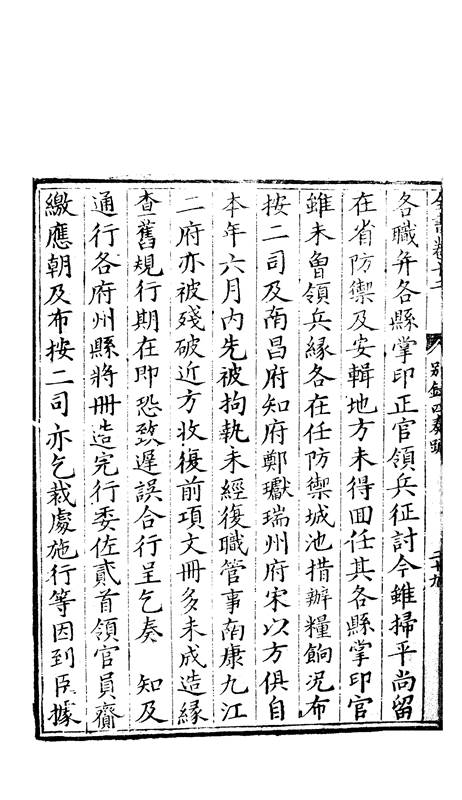 各職并各縣掌印正官領兵征討今雖掃平尚留
在省防禦及安輯地方未得回任其各縣掌印官
雖未曾領兵緣各在任防禦城池措辦糧餉況布
按二司及南昌府知府鄭瓛瑞州府宋以方俱自
本年六月內先被拘執未經復職管事南康九江
二府亦被殘破近方收復前項文冊多未成造緣
查舊規行期在即恐致遲誤合行呈乞奏　知及
通行各府州縣將冊造完行委佐貳首領官員齎
繳應朝及布按二司亦乞裁處施行等因到臣據